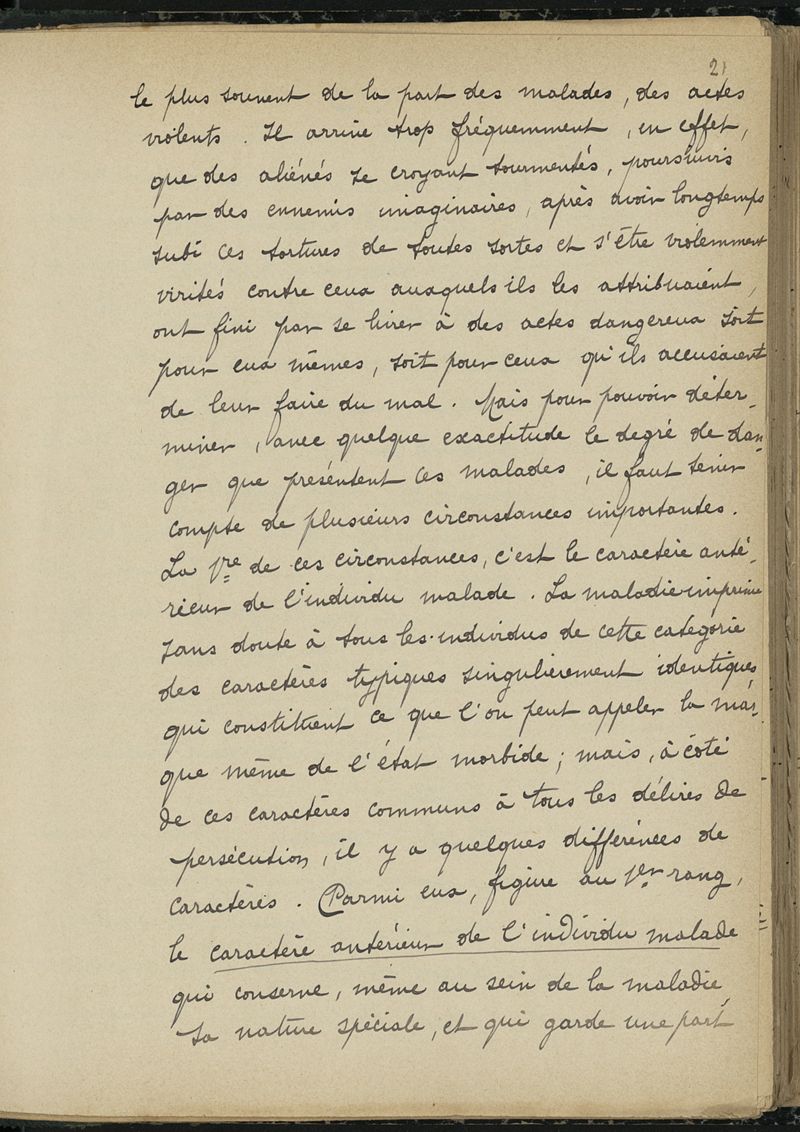 21
le plus souvent de la part des malades, des actes
violents. Il arrive trop fréquemment, en effet,
que des aliénés se croyant tourmentés, poursuivis
par des ennemis imaginaires, après avoir longtemps
subi ces tortures de toutes sortes et s'être violemment
irrités contre ceux auxquels ils les attribuaient,
ont fini par se livrer à des actes dangereux soit
pour eux mêmes, soit pour ceux qu'ils accusaient
de leur faire du mal. Mais pour pouvoir déter-
miner, avec quelque exactitude le degré de dan-
ger que présentent ces malades, il faut tenir
compte de plusieurs circonstances importantes.
La 1re de ces circonstances, c'est le caractère anté-
rieur de l'individu malade. La maladie imprime
sans doute à tous les individus de cette catégorie
des caractères typiques singulièrement identiques
qui constituent ce que l'on peut appeler la mar-
que même de l'état morbide; mais, à côté
de ces caractères communs à tous les délires de
persécution, il y a quelques différences de
caractères. Parmi eux, figure au 1er rang,
le caractère antérieur de l'individu malade
qui conserve, même au sein de la maladie,
sa nature spéciale, et qui garde une part